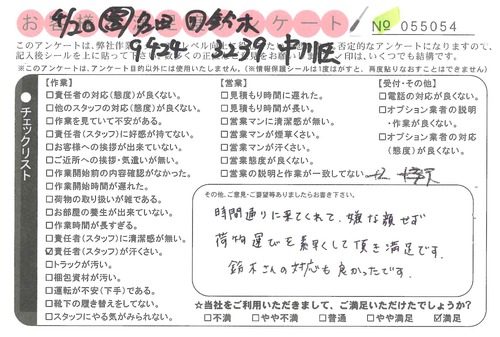 お客様満足度アンケート
№ 055054
4/20
鈴木
9424 2539 中川区
このアンケートは、弊社作業
否定的なアンケートになりますので、
記入後シールを上に貼って下さい
印は、いくつでも結構です。
※このアンケートは、アンケート目的以外には使用いたしません。(※情報保護シールは1度はがすと、再度貼りなおすことはできません)
チェックリスト
【作業】
□責任者の対応(態度)が良くない。
□他のスタッフの対応(態度)が良くない。
□作業を見ていて不安がある。
□責任者(スタッフ)に好感が持てない。
□お客様への挨拶が出来ていない。
□ご近所への挨拶・気遣いが無い。
□作業開始前の内容確認がなかった。
□作業開始時間が遅れた。
□荷物の取り扱いが雑である。
□お部屋の養生が出来ていない。
□作業時間が長すぎる。
□責任者(スタッフ)に清潔感が無い。
☑責任者(スタッフ)が汗くさい。
□トラックが汚い。
□梱包資材が汚い。
□運転が不安(下手)である。
□靴下の履き替えをしてない。
□スタッフにやる気がみられない。
【営業】
□見積もり時間に遅れた。
□見積もり時間が長い。
□営業マンに清潔感が無い。
□営業マンが煙草くさい。
□営業マンが汗くさい。
□営業態度が良くない。
□営業の説明と作業が一致してない
【受付・その他】
□電話の対応が良くない。
□オプション業者の説明
・作業が良くない。
□オプション業者の対応
(態度)が良くない。
その他、ご意見・ご要望等ありましたらお書き下さい。
時間通りに来てくれて、嫌な顔せず
荷物運びを素早くして頂き満足です。
鈴木さんの対応も良かったです。
☆当社をご利用いただきまして、ご満足いただけたでしょうか?
□不満 □やや不満 □普通 □やや満足 ☑満足